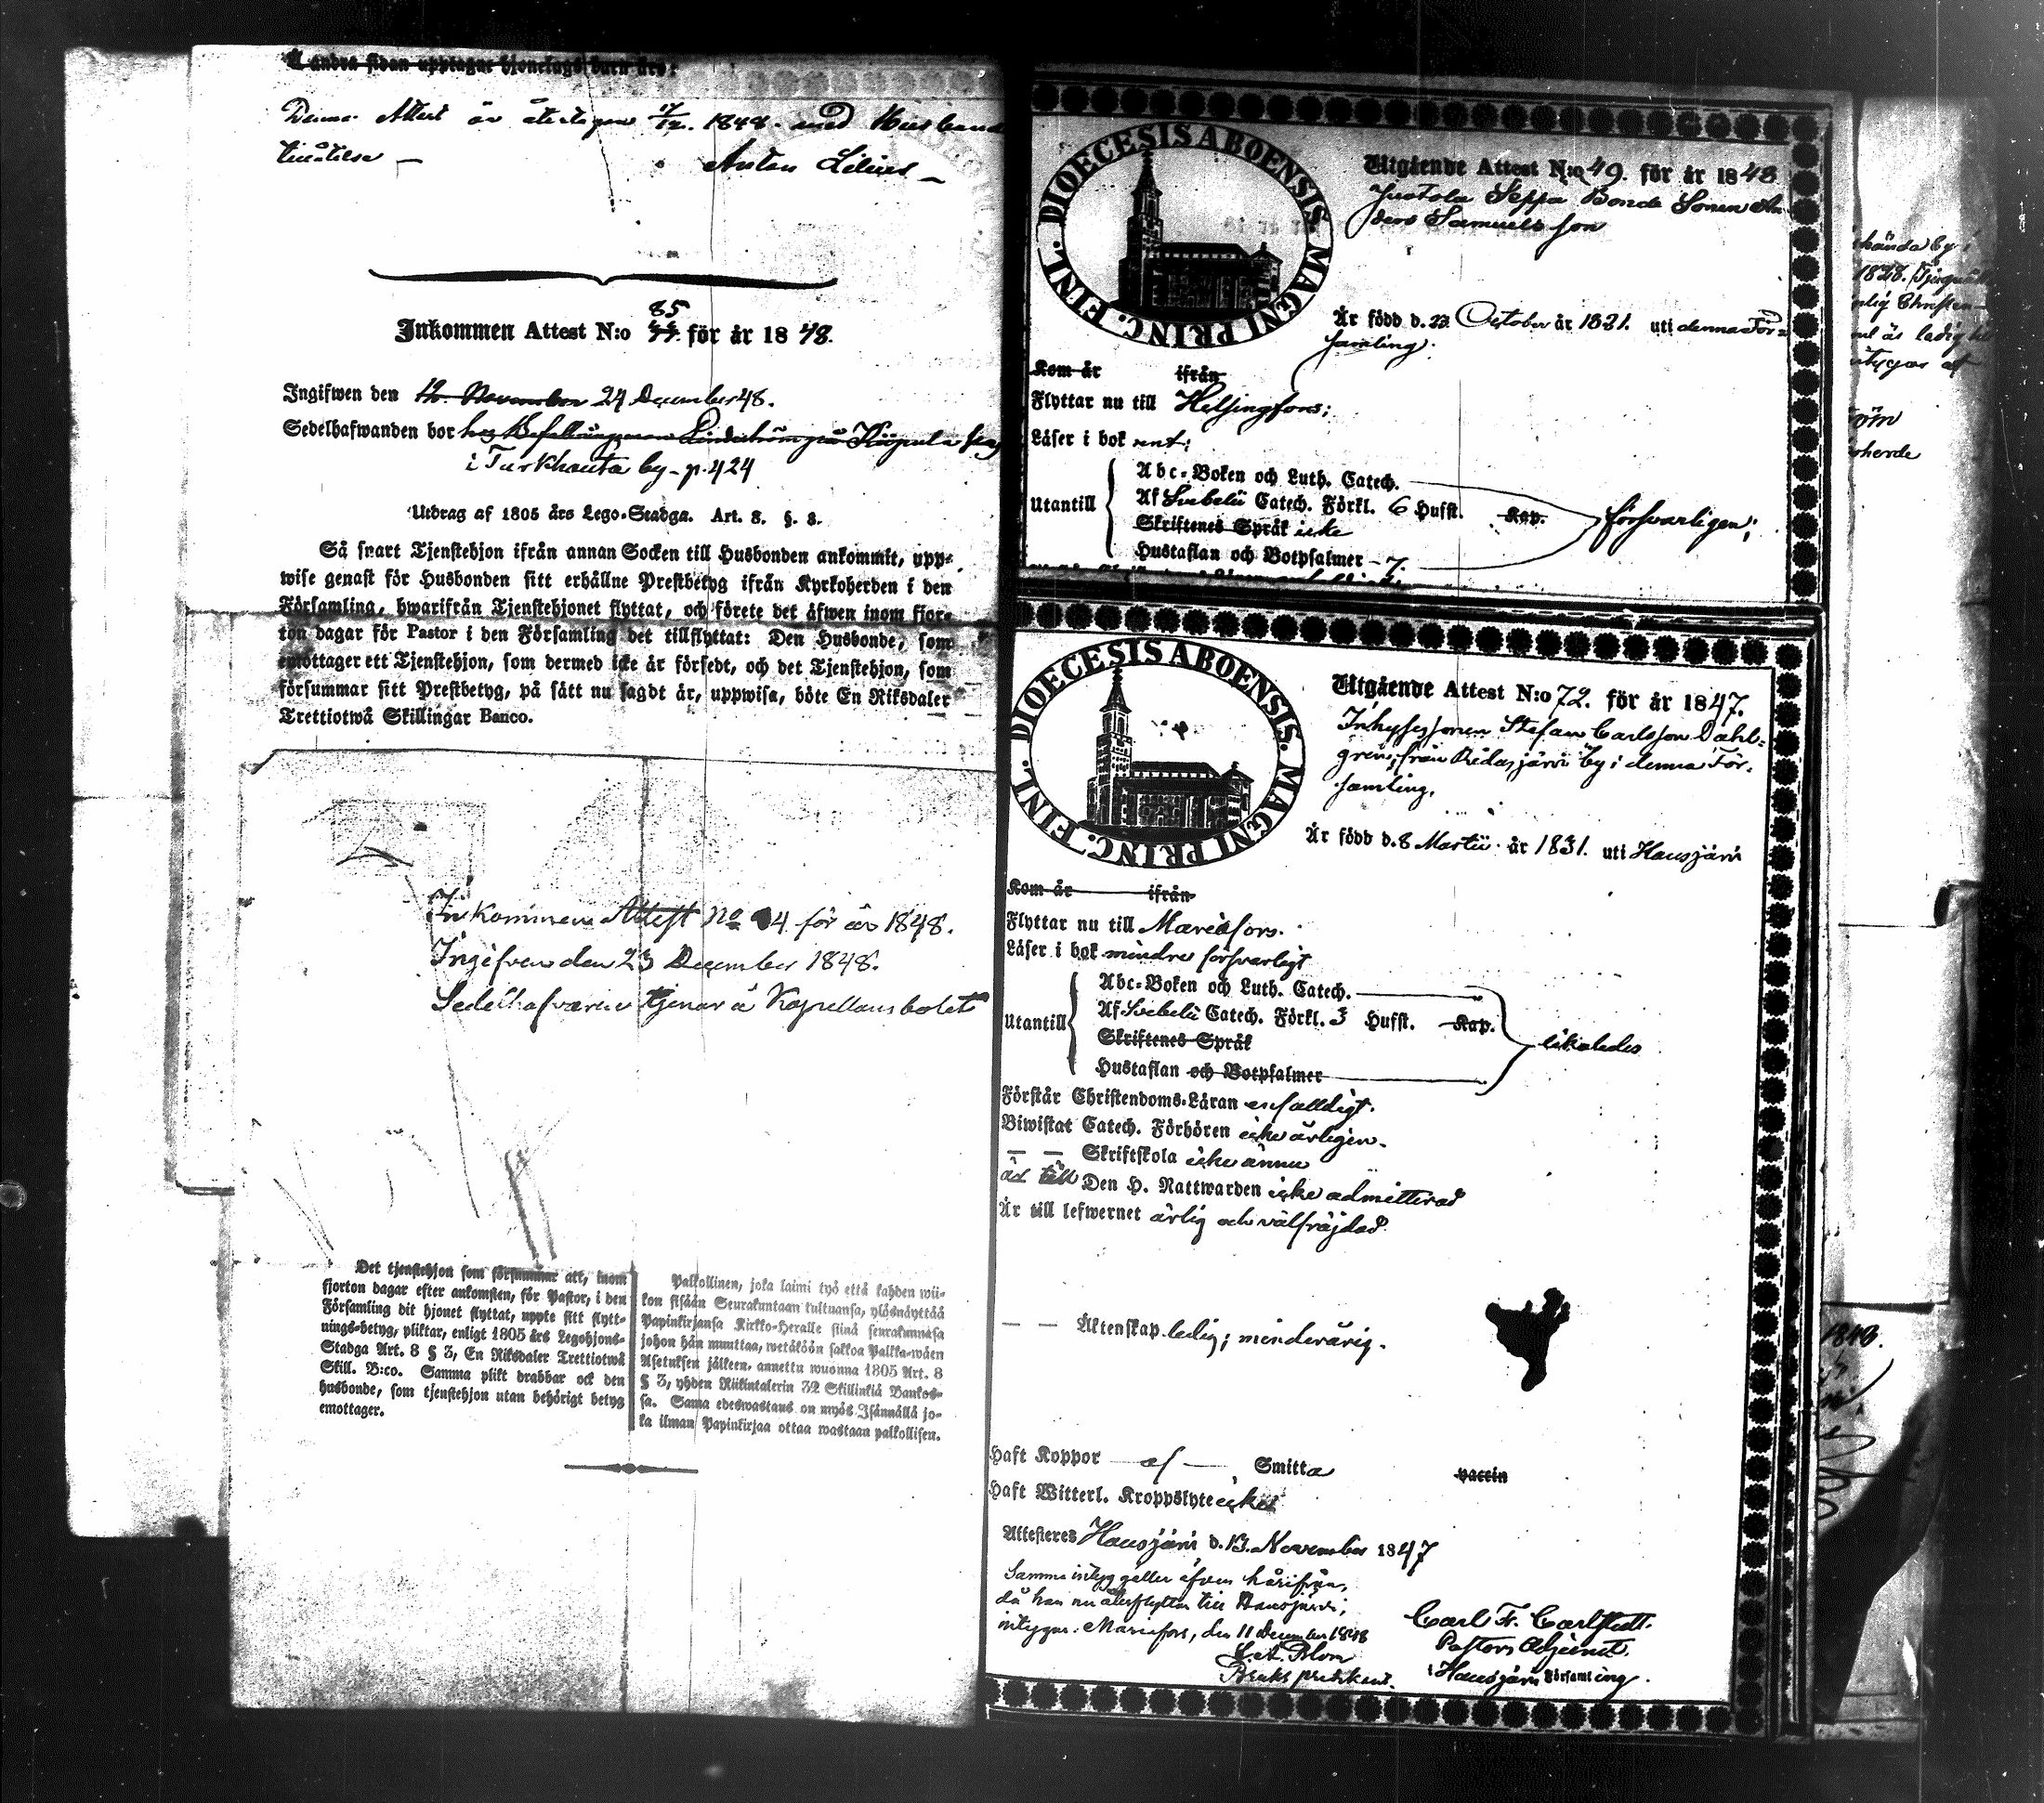 å andra sidan upptagne hjonelags barn äro:
Denna Attest är återtagen 17/12. 1848. med Husbondes
tillåtelse —
Anton Lilius —
85
Inkommen Attest N:o 44. för år 1848.
Ingifwen den 12. November 24 December 48.
Sedelhafwanden bor hos Befallningsman Lindström på Kiipula
i Turkhauta by - p. 424
Utdrag af 1805 års Lego-Stadga. Art. 8. §. 3.
Så snart Tjenstehjon ifrån annan Socken till Husbonden ankommit, upp-
wise genast för Husbonden sitt erhållne Prestbetyg ifrån Kyrkoherden i den
Församling, hwarifrån Tjenstehjonet flyttat, och förete det äfwen inom fjor-
ton dagar för Pastor i den Församling det tillflyttat: Den Husbonde, som
emottager ett Tjenstehjon, som dermed icke är försedt, och det Tjenstehjon, som
försummar sitt Prestbetyg, på sätt nu sagdt är, uppwisa, böte En Riksdaler
Trettiotwå Skillingar Banco.
Inkommen Attest No 4 för år 1848.
Ingifven den 23 December 1848.
Sedelhafvaren tjenar å Kapellansbolet
Det tjenstehjon som försummar att, inom
fjorton dagar efter ankomsten, för Pastor, i den
Församling dit hjonet flyttat, uppte sitt flytt-
nings-betyg, pliktar, enligt 1805 års Legohjons-
Stadga Art. 8 § 3, En Riksdaler Trettiotwå
Skill. B:co. Samma plikt drabbar ock den
husbonde, som tjenstehjon utan behörigt betyg
emottager.
Palkollinen, joka laimi työ että kahden wii-
kon sisään Seurakuntaan tultuansa, ylösnäyttää
Papinkirjansa Kirkko-Heralle siinä seurakunnasa
johon hän muuttaa, wetäköön sakkoa Palkka-wäen
Asetuksen jälkeen, annettu wuonna 1805 Art. 8
§ 3, yhden Riikintalerin 32 Skillinkiä Bankos-
sa. Sama edeswastaus on myös Isännällä jo-
ka ilman Papinkirjaa ottaa wastaan palkollisen.
DIOECESIS ABOENSIS. MAGNI PRINC. FINL.
Utgående Attest N:o 49. för år 1848
Juotola Seppä Bonde Sonen An-
ders Samuelsson
Är född d. 23 October år 1831. uti denna För-
samling.
Kom år ifrån
Flyttar nu till Helsingfors;
Läser i bok rent;
Utantill
Abc-Boken och Luth. Catech.
Af Svebelii Catech. Förkl. 6 Hufst. Kap.
Skriftenes Språk icke
Hustaflan och Botpsalmer - 7.
försvarligen;
DIOECESIS ABOENSIS. MAGNI PRINC. FINL.
Utgående Attest N:o 72. för år 1847.
Inhysessonen Stefan Carlsson Dahl-
gren, från Ridasjärvi by i denna För-
samling.
Är född d. 8 Martii år 1831. uti Hausjärvi
Kom år ifrån
Flyttar nu till Mariefors.
Läser i bok mindre försvarligt
Utantill
Abc-Boken och Luth. Catech.
Af Svebelii Catech. Förkl. 3 Hufst. Kap.
Skriftenes Språk
Hustaflan och Botpsalmer
likaledes
Förstår Christendoms-Läran enfalldigt.
Biwistat Catech. Förhören icke årligen.
— — Skriftskola icke ännu
är till Den H. Nattwarden icke admitterad
Är till lefwernet ärlig och välfräjdad.
— — Äktenskap ledig; minderårig.
Haft Koppor — af — Smitta vaccin
Haft Witterl. Kroppslyte icke
Attesteres Hausjärvi d. 13. November 1847
Samma intyg gäller äfven härifrån,
då han nu återflyttar till Hausjärvi;
intygar. Mariefors, den 11 December 1848
Bruks predikant.
Carl Fr. Carlstedt.
Pastors Adjunct
i Hausjärvi Församling.
by i
1828.
är ledig
intygar
1848.